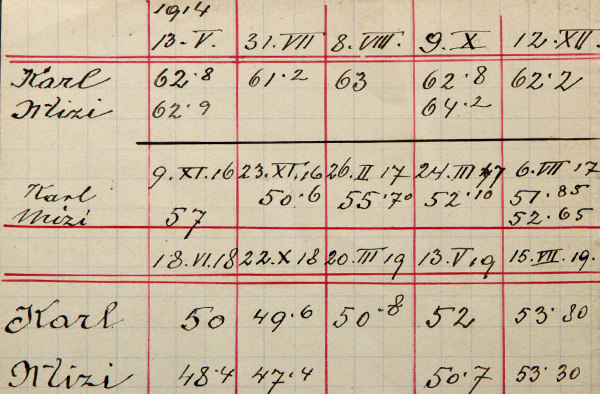 1914
13·V. 31.VII 8.VIII. 9.X 12·XII.
Karl 62·8 61·2 63 62·8 62·2
Mizi 62·9 64·2
9.XI.16 23.XI.16 26.II 17 24.III 17 6.VII 17
Karl 50·6 55·70 52·10 51·85
Mizi 57 52·65
18.VI.18 22.X 18 20.III 19 13.V 19 15.VII.19.
Karl 50 49·6 50·8 52 53·80
Mizi 48·4 47·4 50·7 53·30